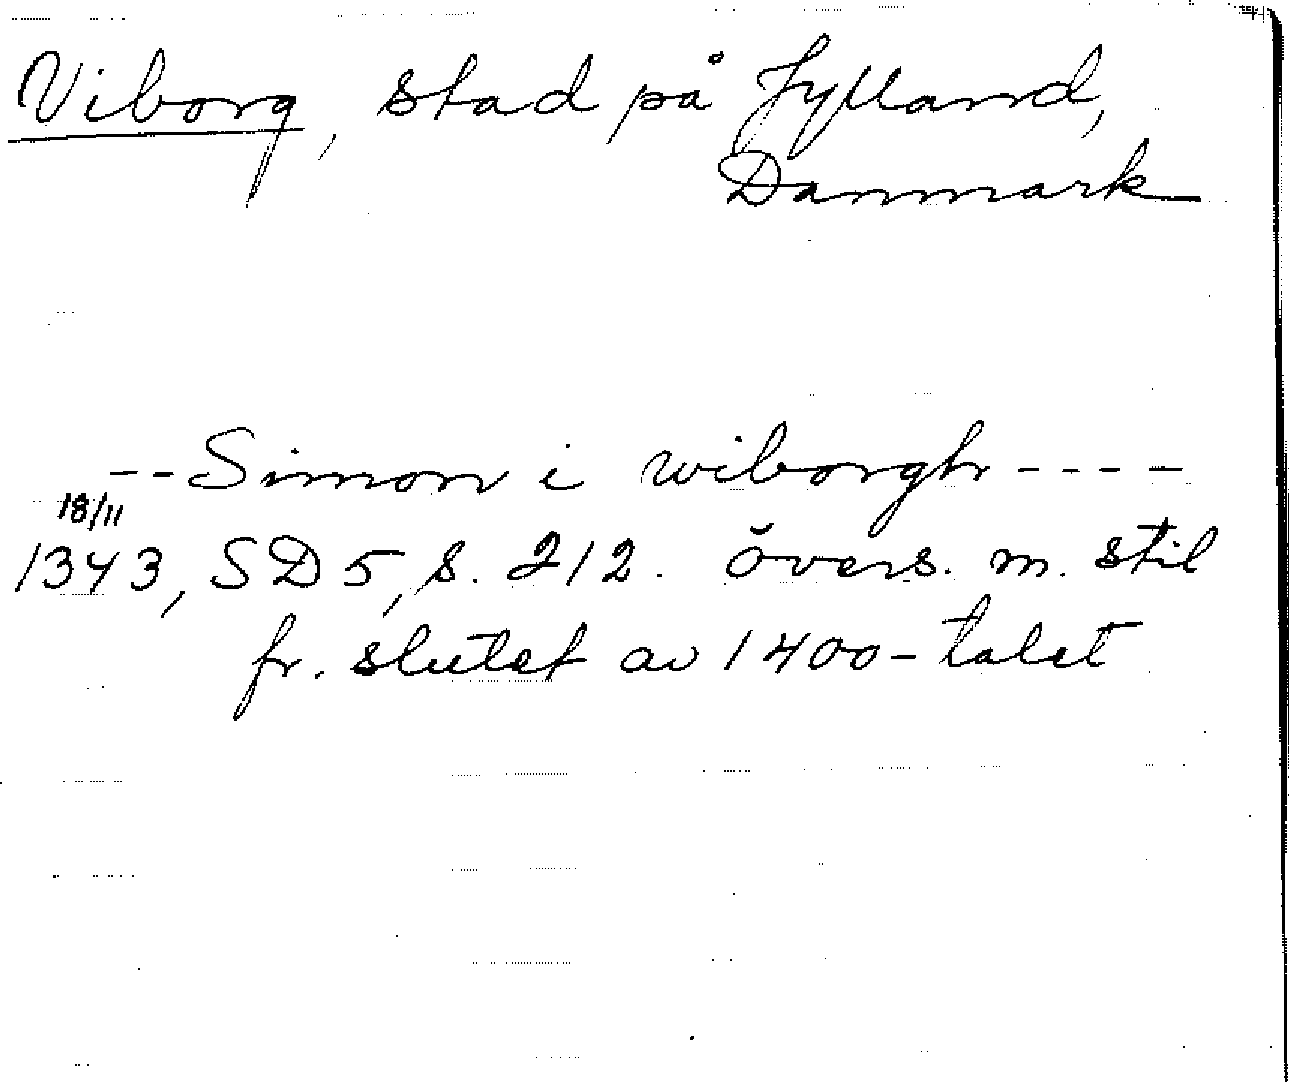 Viborg, stad på Jylland,
Danmark
--Simon i wiborgh----
18/11
1343, SD 5, s. 212. övers. m. stil
fr. slutet av 1400-talet